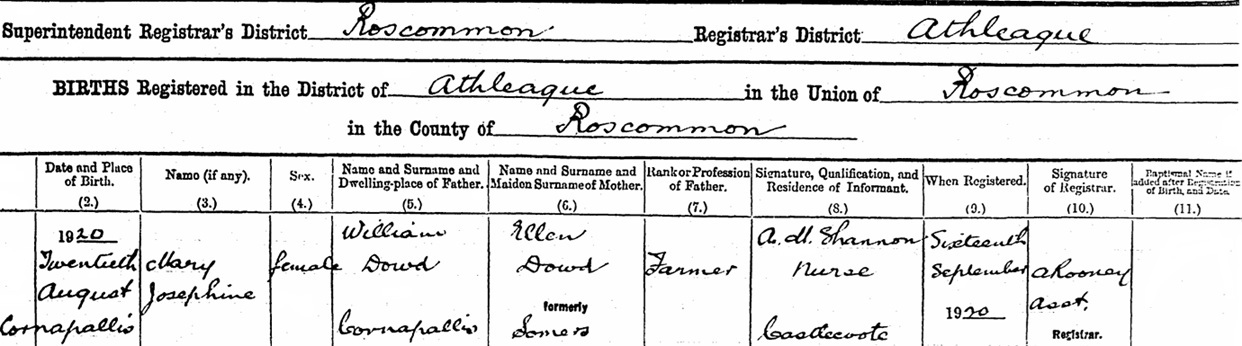 Superintendent Registrar's District Roscommon Registrar's District Athleague
BIRTHS Registered in the District of Athleague in the Union of Roscommon
in the County of Roscommon
Date and Place of Birth. (2.)
Name (if any). (3.)
Sex. (4.)
Name and Surname and Dwelling-place of Father. (5.)
Name and Surname and Maiden Surname of Mother. (6.)
Rank or Profession of Father. (7.)
Signature, Qualification, and Residence of Informant. (8.)
When Registered. (9.)
Signature of Registrar. (10.)
Baptismal Name if added after Registration of Birth, and Date. (11.)
1920 William Ellen A. M. Shannon Sixteenth
Twentieth Mary female Dowd Dowd Farmer Nurse September A Rooney
August Josephine formerly 1920 Asst.
Cornapallis Cornapallis Somers Castlecoote Registrar.